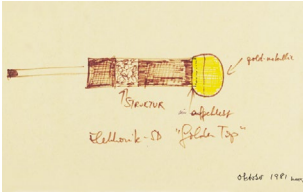 gold-metallic
STRUKTUR
Elektronik-SD "Golden Top"
Oktober 1981